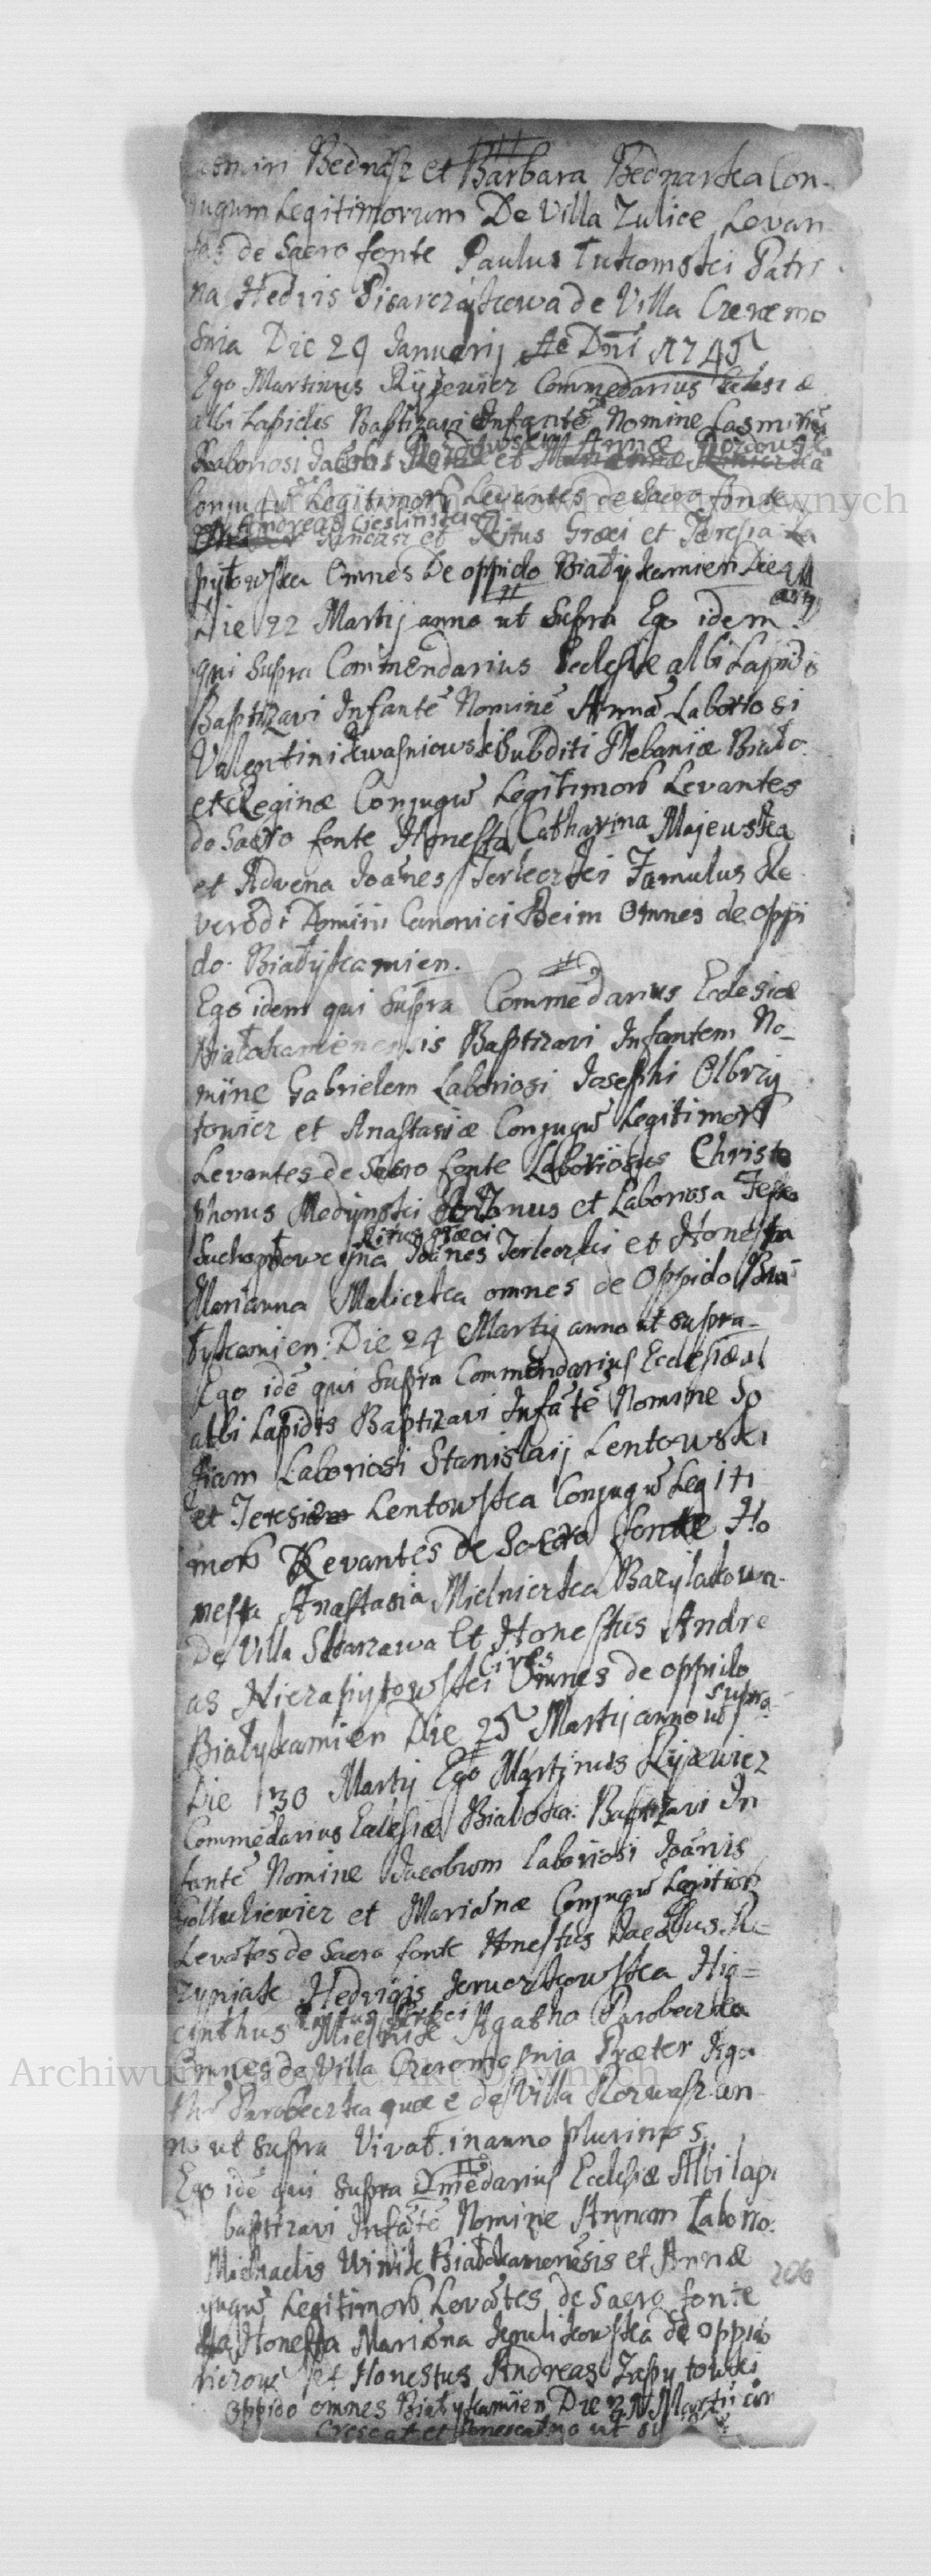 Bednasz et Barbara Bednarska Con-
iugum Legitimorum De Villa Zulice Levan
tes de Sacro fonte Paulus Tutkomski Patri
na Hedvis Pisarczykowa de Villa Czeremo
snia Die 29 Januarij Ao Dni 1745
Ego Martinus Ryżewicz Commedarius Eclesiæ
albi Lapidis Baptizavi Infantē Nomine Casmirū
Laboriosi Jacobi et Annæ
Conjugū Legitimorū Levantes de Sacro fonte
Andreas Cieslinski
et Ritus Græci et Teresia Za
pytowska Omnes De oppido Białykamien Die
Die 22 Martij anno ut Supra Ego idem
qui Supra Commendarius Ecclesiæ albi Lapidis
Baptizavi Infantē Nominē Annā Laboriosi
Valentini Kwasniowski Subditi Plebaniæ Biało
et Reginæ Conjugū Legitimorū Levantes
de Sacro fonte Honesta Catharina Majewska
et Advena Joānes Terleczki Famulus Re
verēdi Domini Canonici Beim Omnes de Oppi
do Białykamien.
Ego idem qui Supra Commēdarius Eclesiæ
Białokamenensis Baptizavi Infantem No-
mine Gabrielem Laboriosi Josephi Olbry
towicz et Anastasiæ Conjugū Legitimorū
Levantes de Sacro fonte Laboriosus Christo
phorus Medynski et Laboriosa
Ritus Græci
Joānes Terleczki et Honesta
Marianna Maliczka omnes de Oppido Bia
łykamien: Die 24 Martij anno ut supra
Ego idē qui Supra Commendarius Ecclesiæ al
albi Lapidis Baptizavi Infātē Nomine So
fiam Laboriosi Stanislaij Lentowski
et Teresiæ Lentowska Conjugū Legiti
morū Levantes de Sacro fonte Ho
nesta Anastasia Mielniczka Barylakowa
De Villa Skwarzawa Et Honestus Andre
as Niezapytowski Cives Omnes de oppido
Białykamien Die 25 Martij anno ut supra
Die 30 Martij Ego Martinus Ryżewicz
Commēdarius Eclesiæ Białoka: Baptizavi In
fantē Nomine Jacobum Laboriosi Joānis
et Mariānæ Conjugū Legitimorū
Levātes de Sacro fonte Honestus
Hedvigis Hia=
cinthus Ritus Græci Agatha Parobeczka
Omnes de Villa Czeremosnia Præter Aga
thā Parobeczka quæ e de Villa an
no ut Supra Vivat in anno plurimos.
Ego idē qui Supra Cōmēdarius Ecclesiæ Albi Lapi
baptizavi Infātē Nomine Annam Laborio
Michaelis Winik Białokamenēsis et Annæ
jugū Legitimorū Levātes de Sacro fonte
Honesta Mariāna de Oppido
et Honestus Andreas Zapytowski
Oppido omnes Białykamien Die Martii an
Crescat et Senescat no ut su
206
Archiwum Główne Akt Dawnych
Archiwum Główne Akt Dawnych